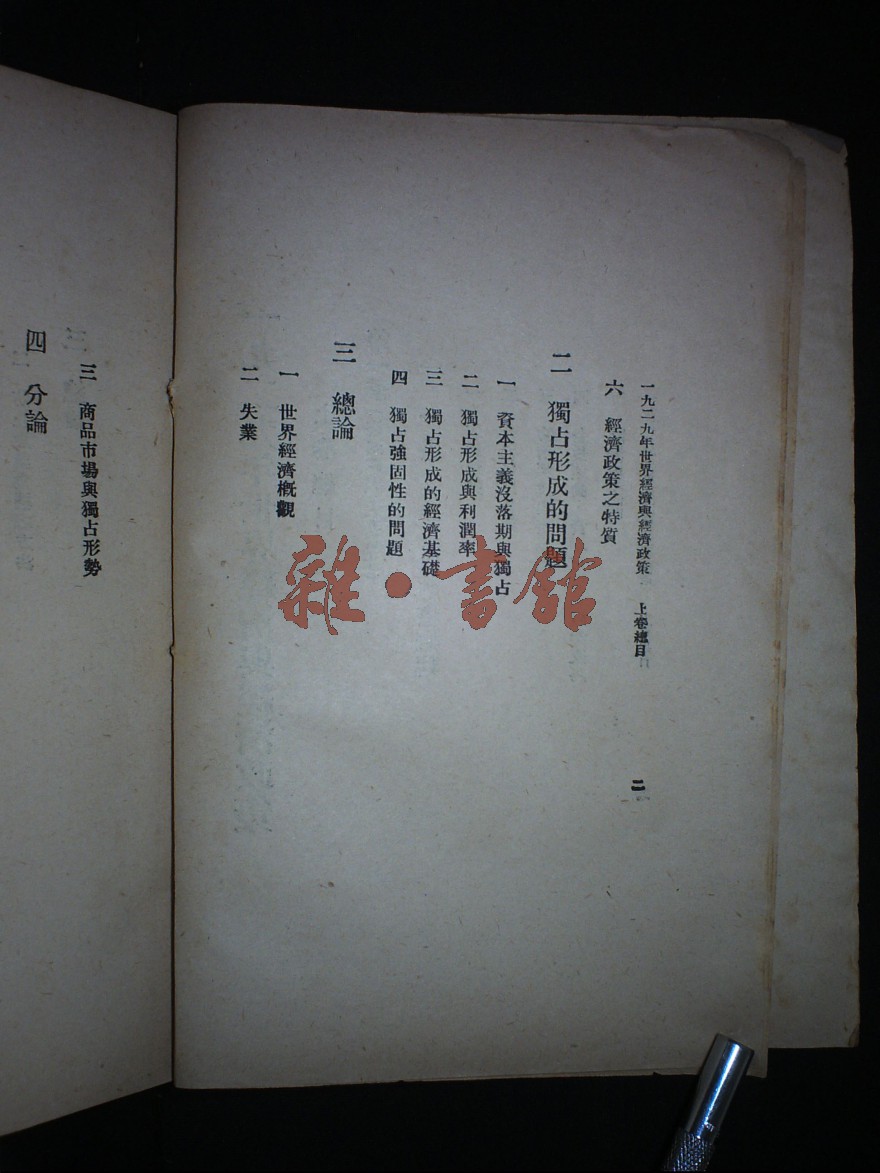 一九二九年世界經濟與經濟政策　上卷總目　二
六　經濟政策之特質
二　獨占形成的問題
一　資本主義沒落期與獨占
二　獨占形成與利潤率
三　獨占形成的經濟基礎
四　獨占強固性的問題
三　總論
一　世界經濟概觀
二　失業
三　商品市場與獨占形勢
四　分論
雜·書館